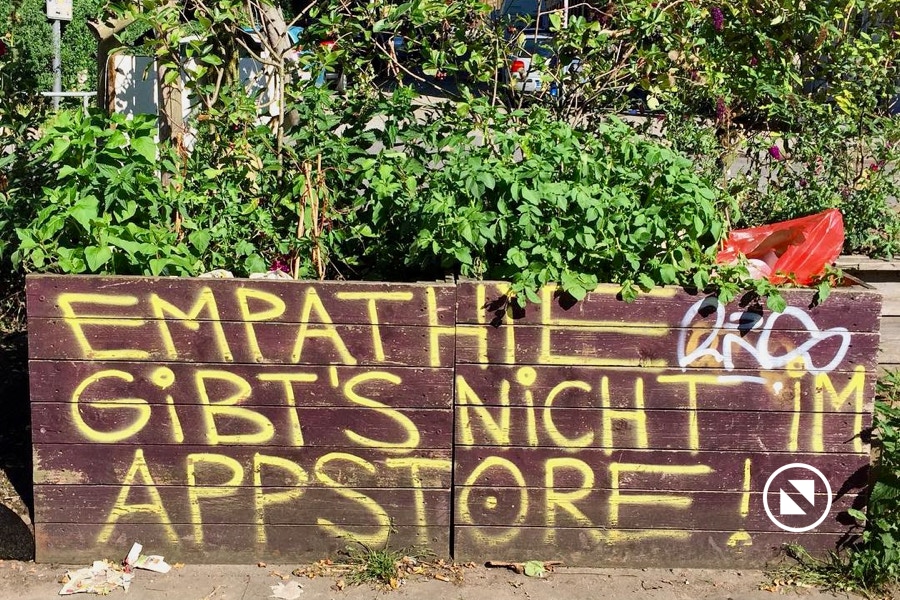 EMPATHIE
GiBT'S NiCHT iM
APPSTORE!